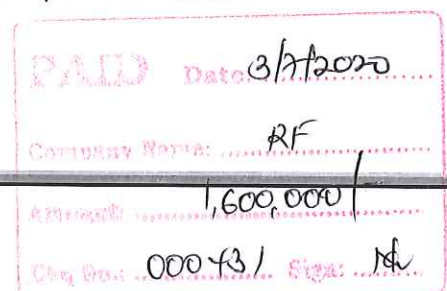 PAID Date: 3/7/2020
Company Name: RF
Amount: 1,600,000/
Chq No.: 000431 Sign: